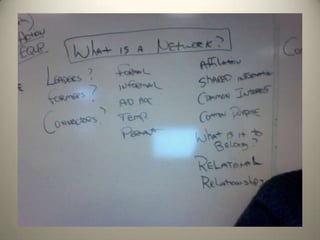 ACTION
EQUIP.
WHAT IS A NETWORK?
LEADERS?
FORMERS?
CONNECTORS?
FORMAL
INFORMAL
AD HOC
TEMP.
PERMANT
AFFILIATION
SHARED INFORMATION
COMMON INTEREST
COMMON PURPOSE
WHAT IS IT TO
BELONG?
RELATIONAL
RELATIONSHIP